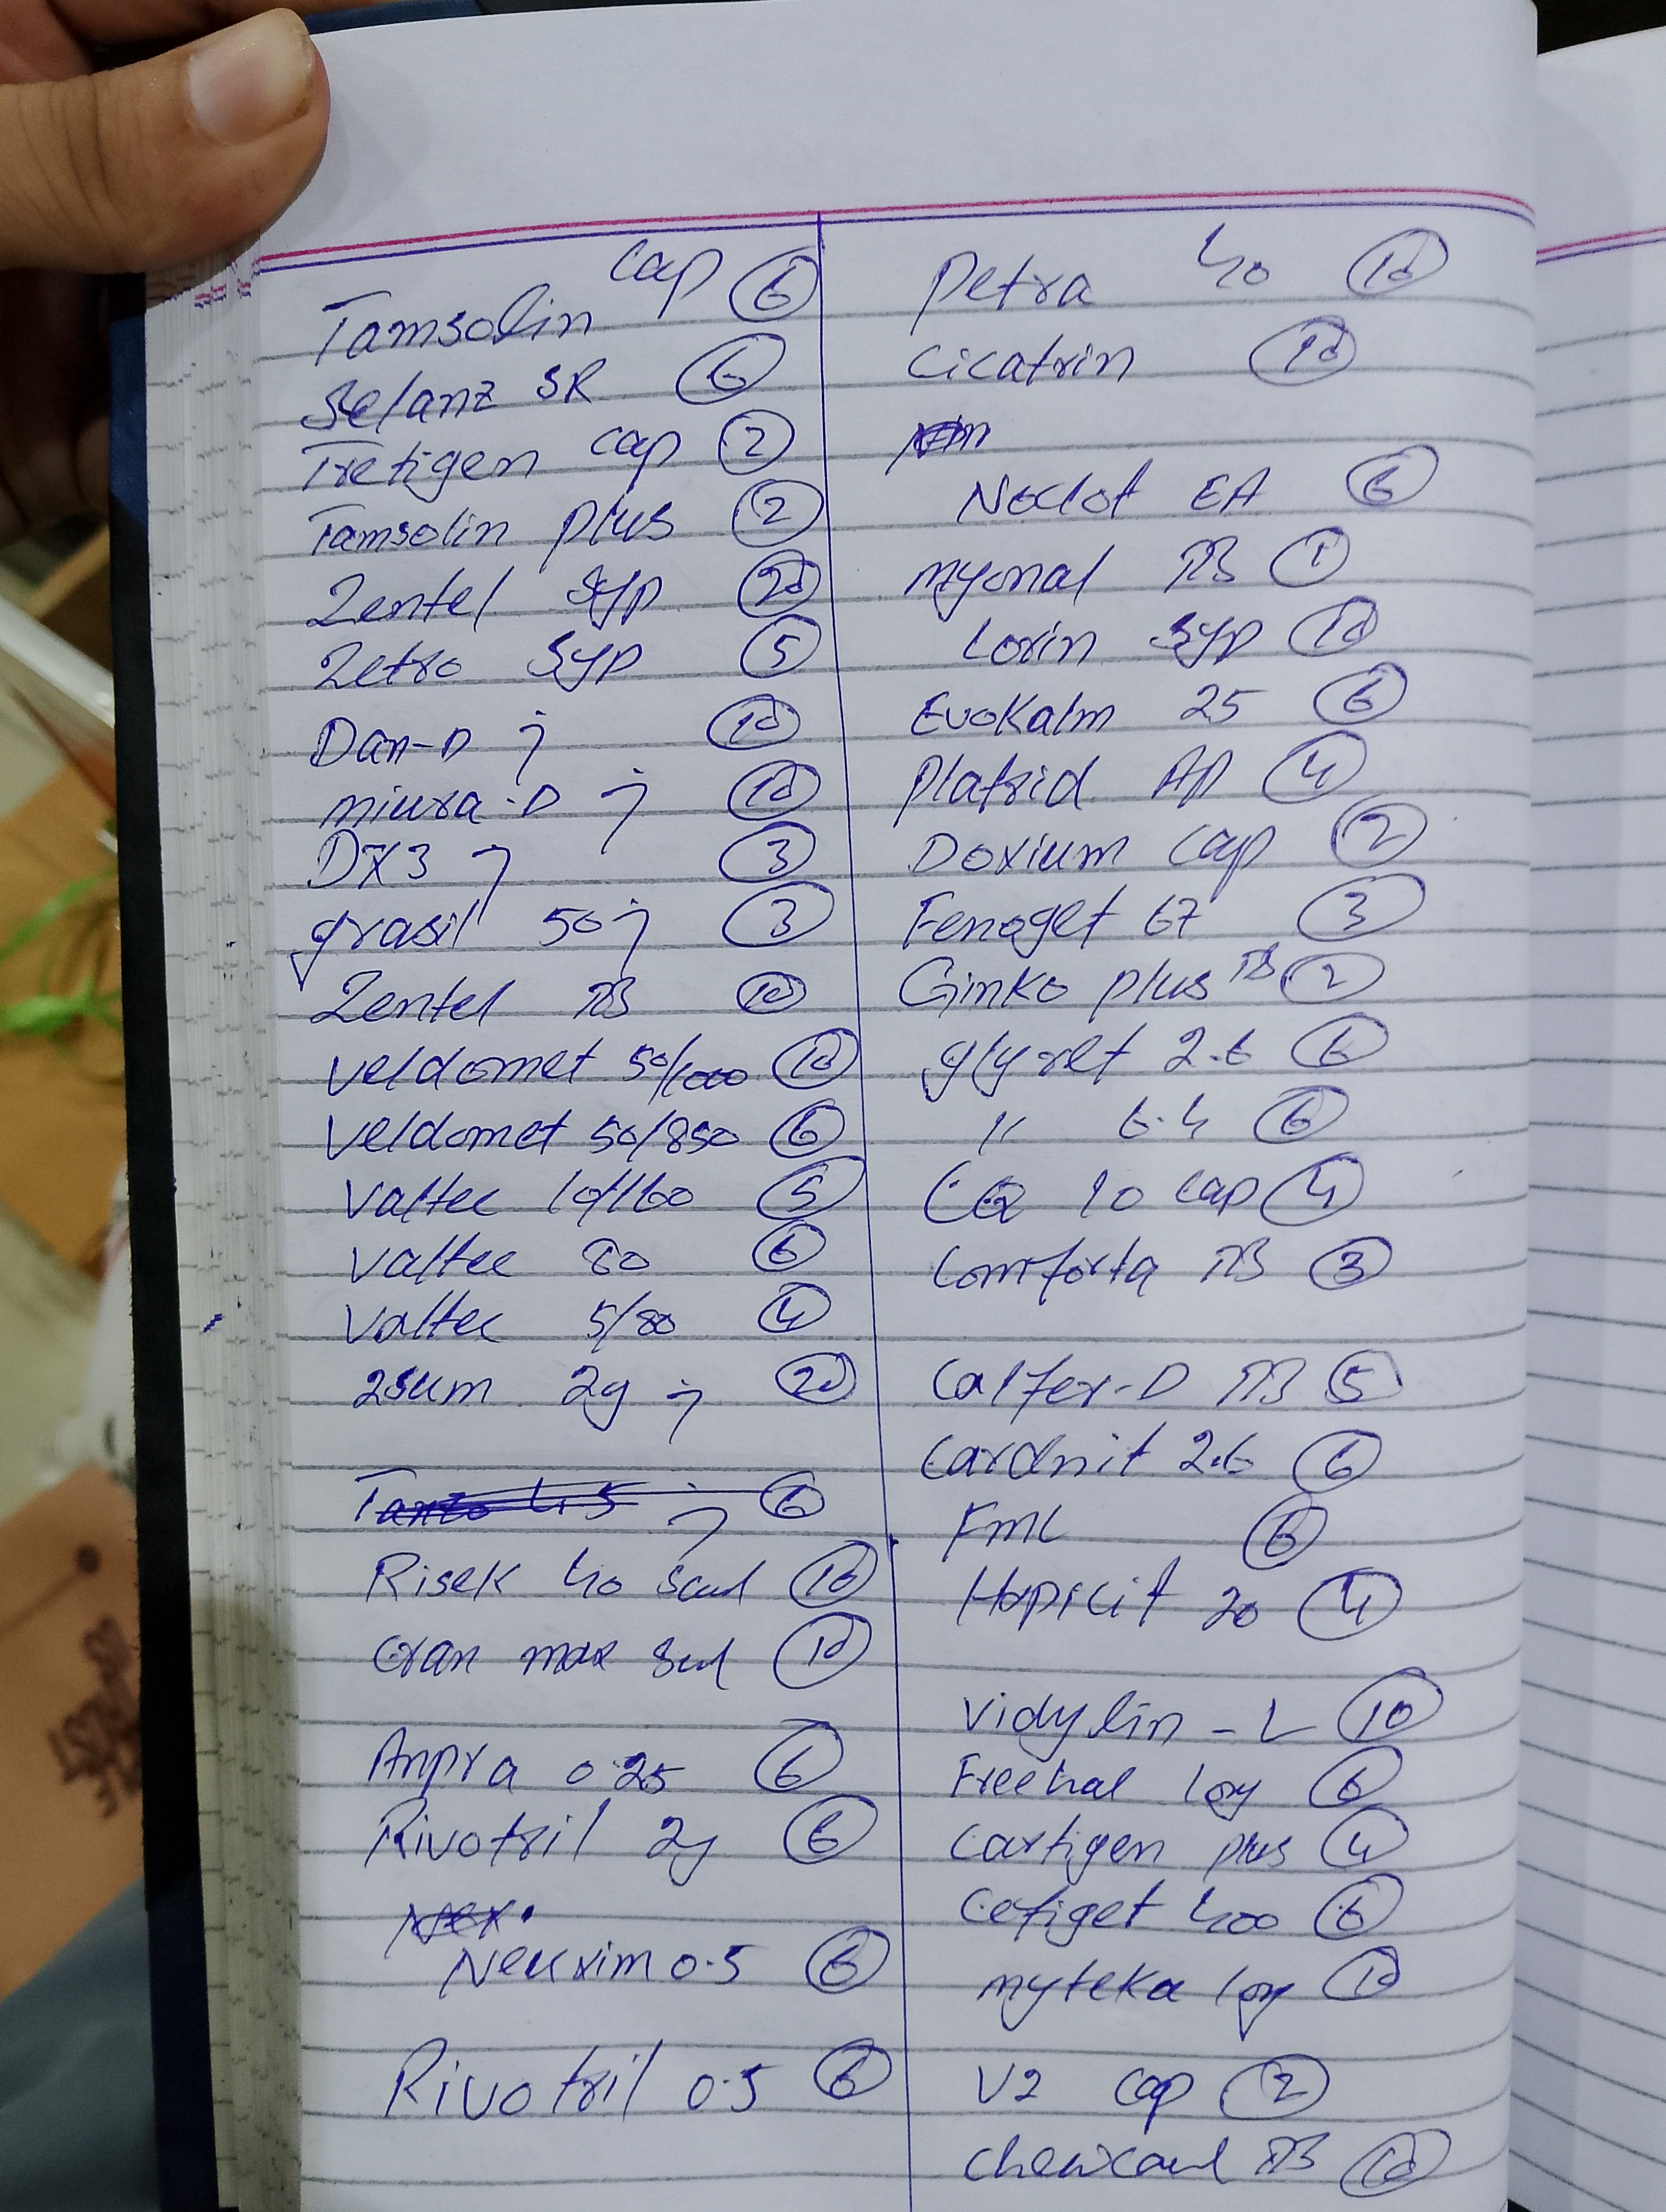 Tamsolin cap 6
Selanz SR 6
Tretigen cap 2
Tamsolin plus 2
Zentel syp 20
Zetro syp 5
Dan-D j 10
miura-D j 10
DX3 j 3
grasil 50 j 3
Zentel TB 10
veldomet 50/1000 10
veldomet 50/850 6
valtec 10/160 5
valtec 80 6
valtec 5/80 4
2sum 2g j 20
Tanzo 4.5 j 6
Risek 40 10
cran max 10
Anpra 0.25 6
Rivotril 2g 6
Neuxim 0.5 6
Rivotril 0.5 6
Petra 40 10
Cicatrin 10
Noclot EA 6
myonal TB 1
Lorin syp 10
Evokalm 25 6
Platrid AP 4
Doxium cap 2
Fenoget 67 3
Ginko plus TB 2
glyret 2.6 6
" 6.4 6
CQ 10 cap 4
comforta TB 3
calfer-D TB 5
cardnit 2.6 6
FML 6
4
vidylin-L 10
Freehal 6
cartigen plus 4
cefiget 400 6
myteka 10
V2 cap 2
TB 10